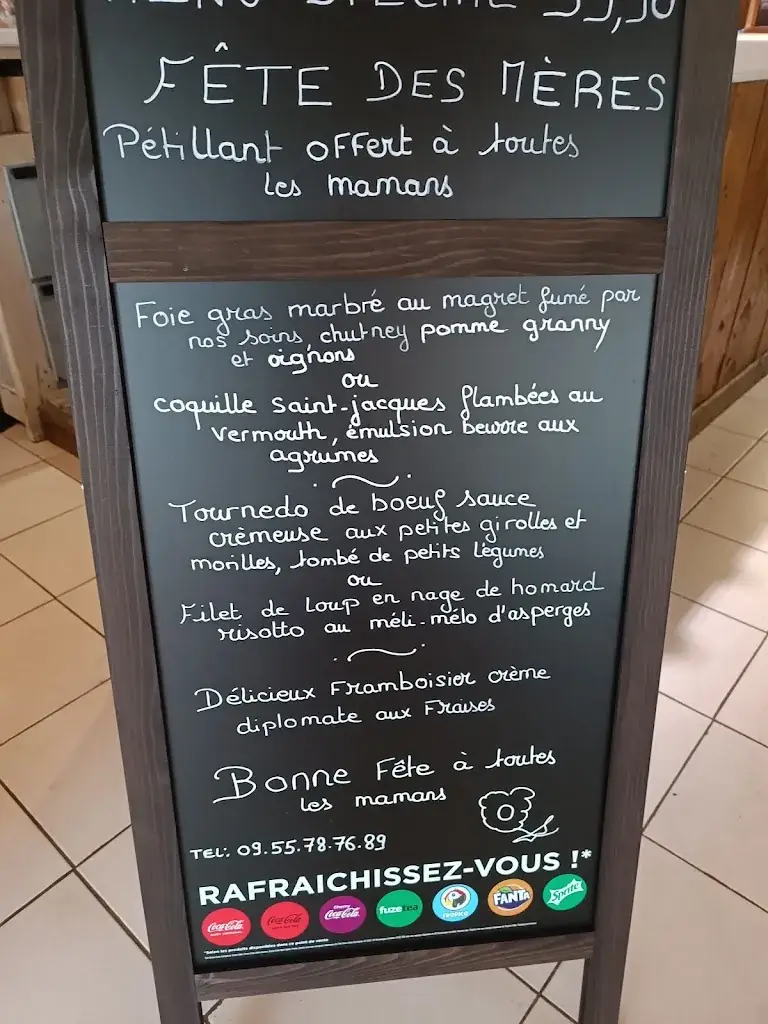 MENU SPECIAL 39,90
FÊTE DES MÈRES
Pétillant offert à toutes
les mamans
Foie gras marbré au magret fumé par
nos soins, chutney pomme granny
et oignons
ou
coquille Saint-jacques flambées au
vermouth, émulsion beurre aux
agrumes
Tournedo de boeuf sauce
crèmeuse aux petites girolles et
morilles, tombé de petits légumes
ou
Filet de loup en nage de homard
risotto au méli-mélo d'asperges
Délicieux Framboisier crème
diplomate aux Fraises
Bonne Fête à toutes
les mamans
TEL: 09.55.78.76.89
RAFRAICHISSEZ-VOUS !*
Coca-Cola
Coca-Cola
Cherry
Coca-Cola
fuzetea
TROPICO
FANTA
Sprite
*Selon les produits disponibles dans ce point de vente